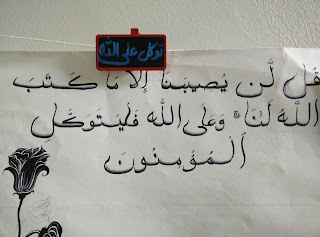 توكل على الله
قُل لَّن يُصِيبَنَا إِلَّا مَا كَتَبَ
اللَّهُ لَنَا * وَعَلَى اللَّهِ فَلْيَتَوَكَّلِ
الْمُؤْمِنُونَ